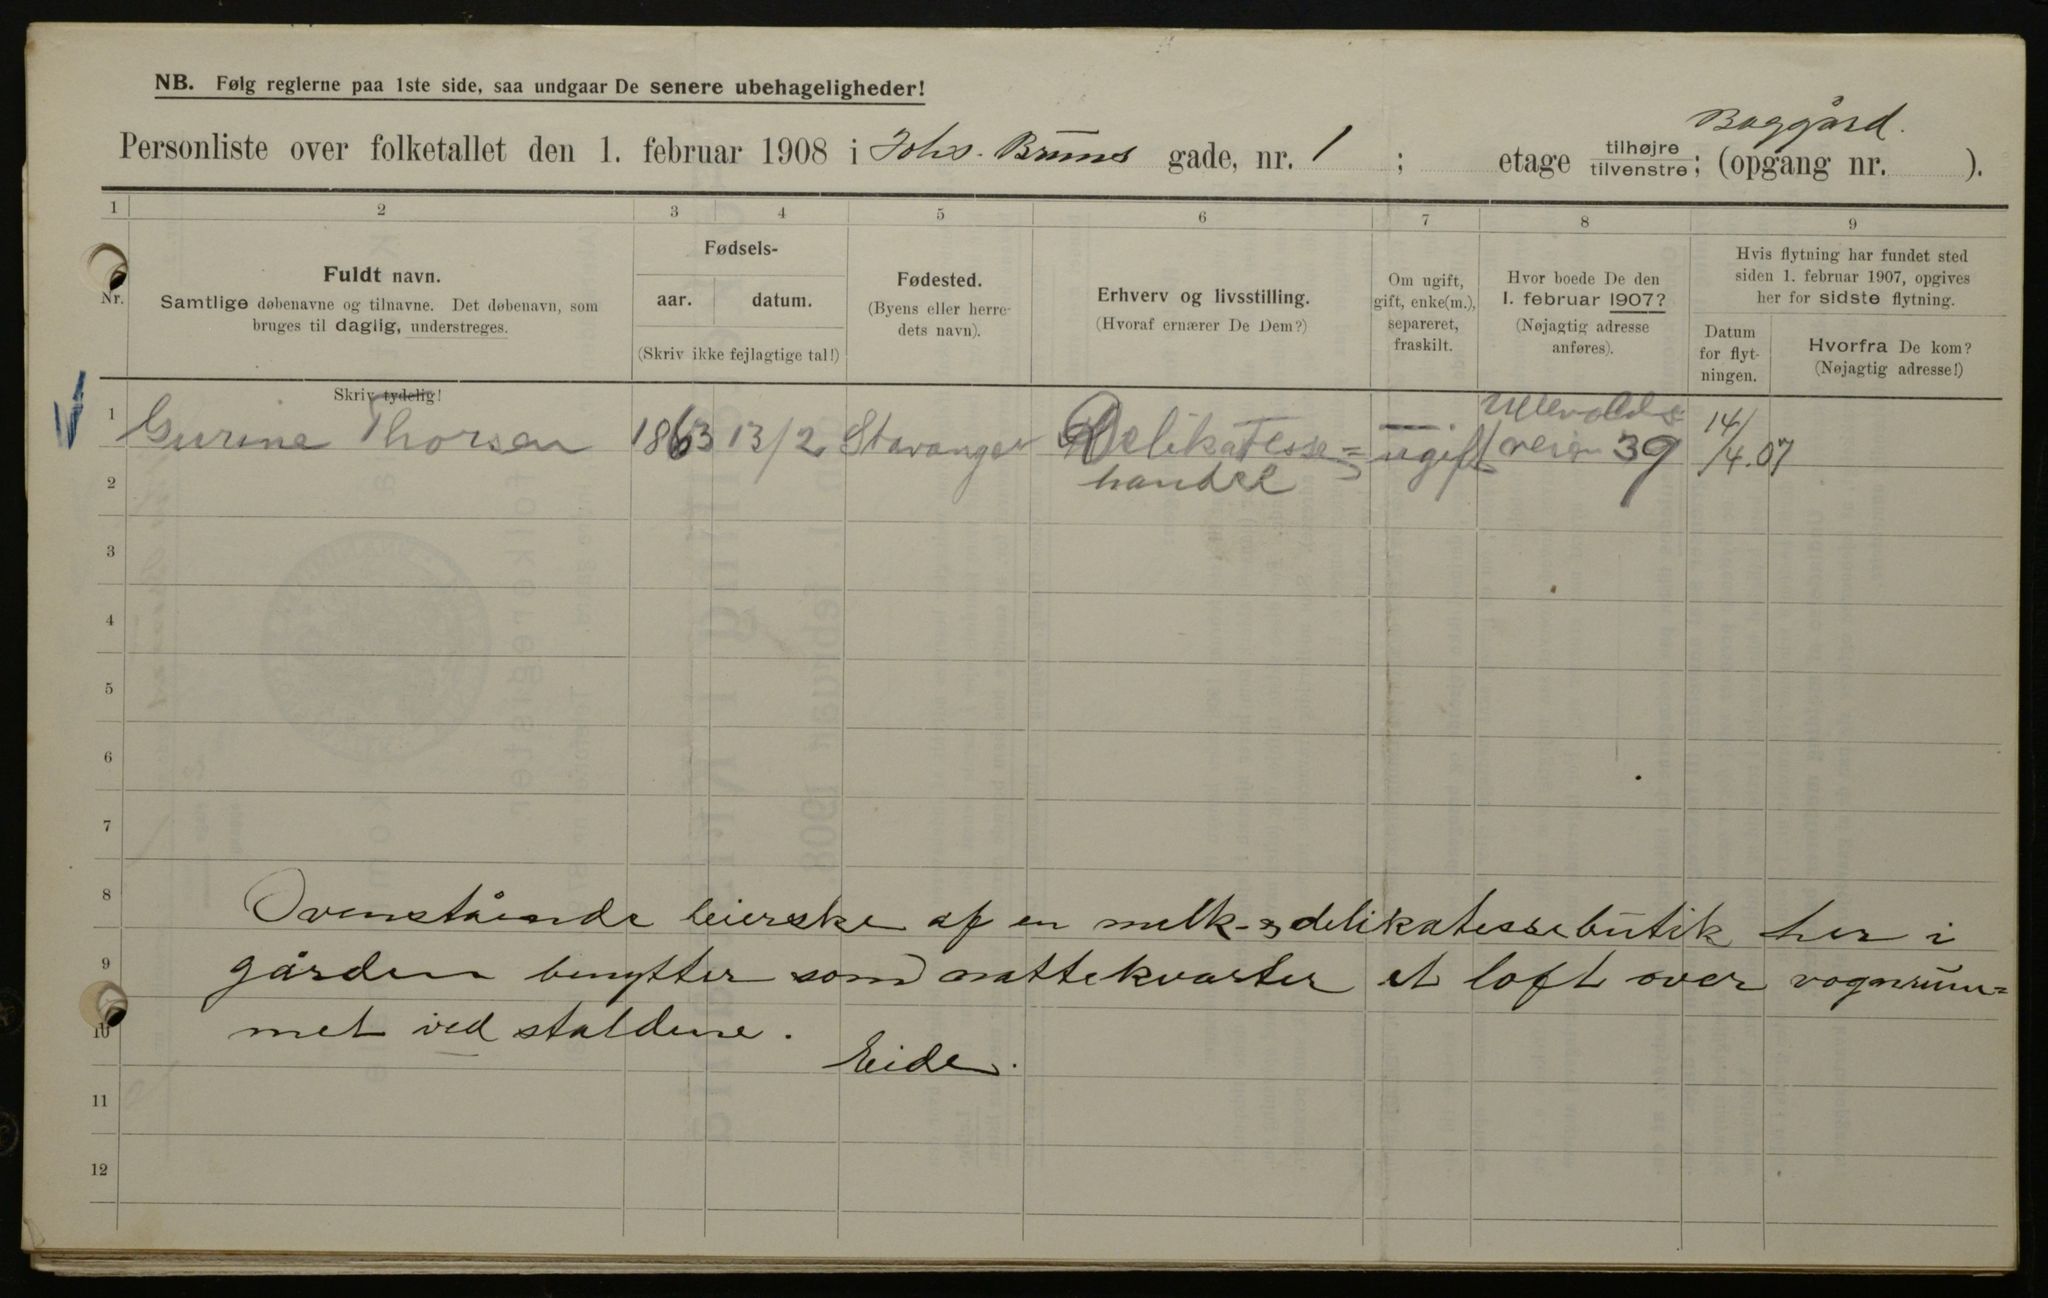 NB. Følg reglerne paa 1ste side, saa undgaar De senere ubehageligheder!
Baggård.
Personliste over folketallet den 1. februar 1908 i Johs. Bruns gade, nr. 1 ; etage tilhøjre tilvenstre; (opgang nr. ).
1 2 3 4 5 6 7 8 9
Nr.
Fuldt navn.
Samtlige døbenavne og tilnavne. Det døbenavn, som
bruges til daglig, understreges.
Skriv tydelig!
Fødsels-
aar. datum.
(Skriv ikke fejlagtige tal!)
Fødested.
(Byens eller herre-
dets navn).
Erhverv og livsstilling.
(Hvoraf ernærer De Dem?)
Om ugift,
gift, enke(m.),
separeret,
fraskilt.
Hvor boede De den
1. februar 1907?
(Nøjagtig adresse
anføres).
Hvis flytning har fundet sted
siden 1. februar 1907, opgives
her for sidste flytning.
Datum
for flyt-
ningen.
Hvorfra De kom?
(Nøjagtig adresse!)
1 Gurine Thorsen 1863 13/2 Stavanger Delikatesse= ugift Ullevolds veien 39 14/4.07
handel
2
3
4
5
6
7
8
Ovenstående leierske af en melk- & delikatessebutik her i
9
gården benytter som nattekvarter et loft over vognrum=
10
met ved staldene.
Eide.
11
12